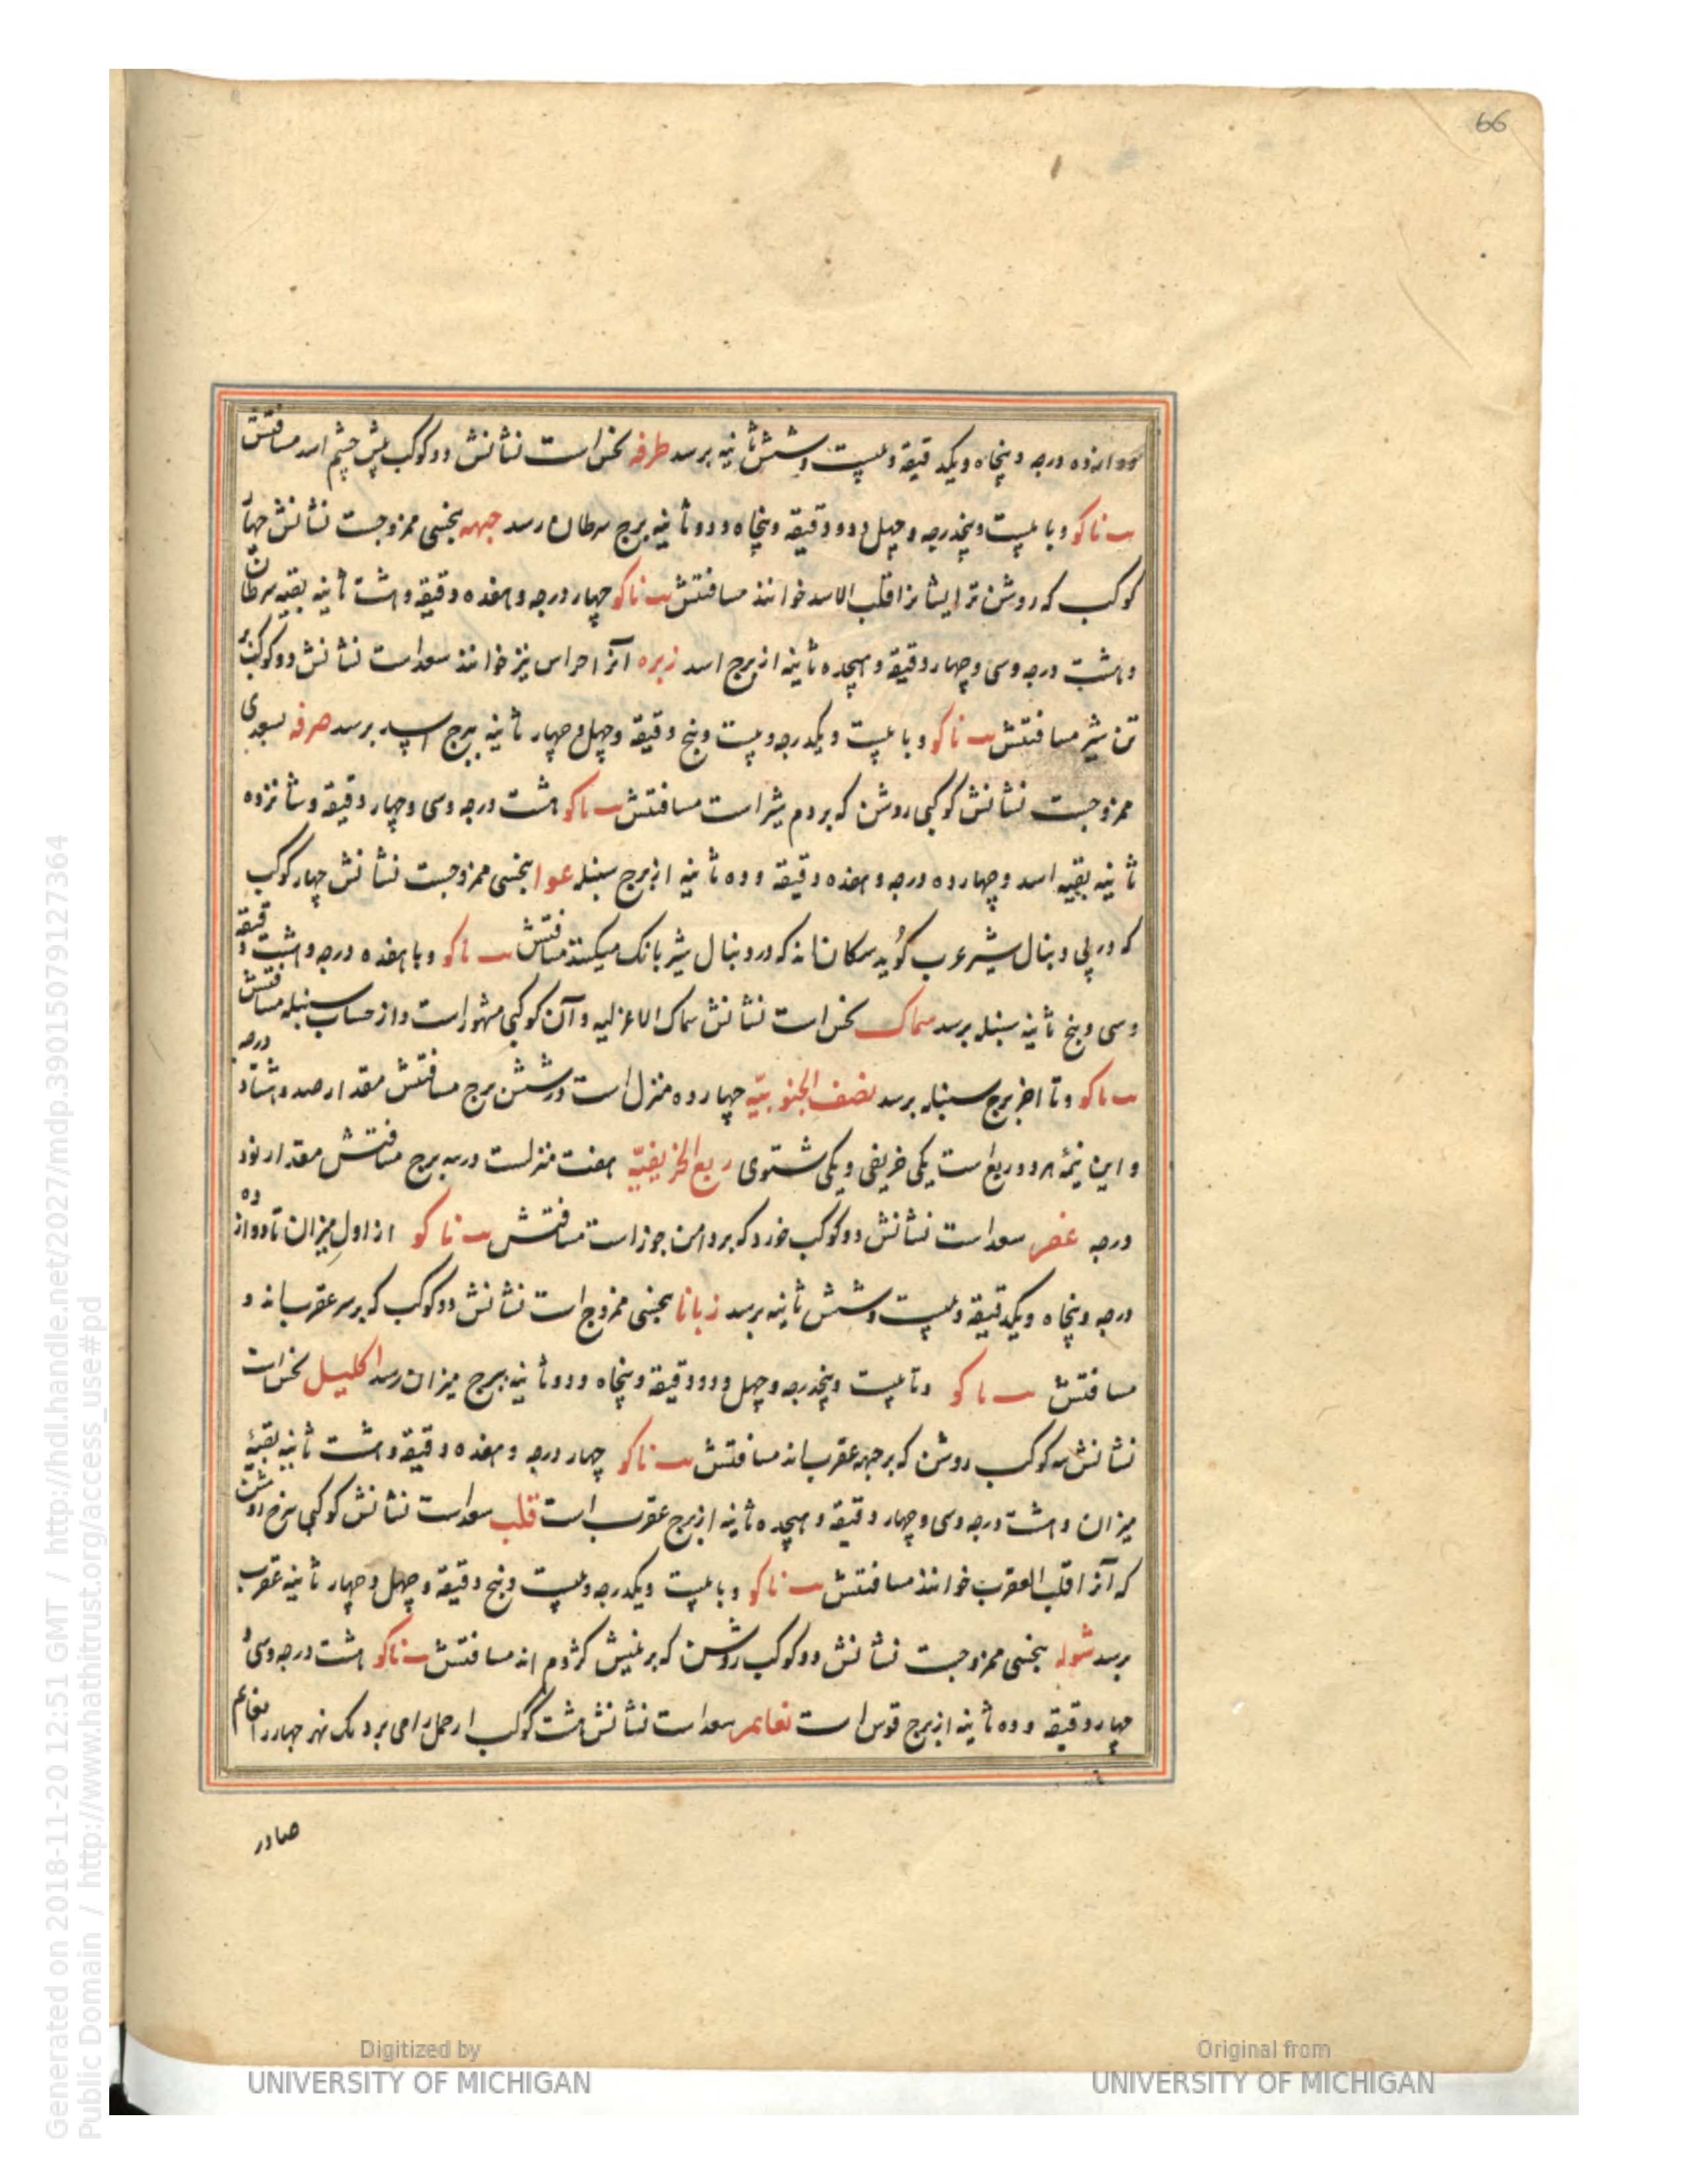 66
دوازده درجه و پنجاه و یکدقیقه و بیست و شش ثانیه برسد طرفه نحس است نشانش دو کوکب پیش چشم اسد مسافتش
ب نا کو و با بیست و پنجدرجه و چهل و دو دقیقه و پنجاه و دو ثانیه برج سرطان رسد جبهه بنحسی ممزوجست نشانش چهار
کوکب که روشن تر ایشانرا قلب الاسد خوانند مسافتش ب نا کو چهار درجه و هفده دقیقه و هشت ثانیه بقیه سرطان
و هشت درجه و سی و چهار دقیقه و هیجده ثانیه از برج اسد زبره آنرا خراس نیز خوانند سعد است نشانش دو کوکب بر
تن شیر مسافتش ب نا کو و با بیست و یکدرجه و بیست و پنج دقیقه و چهل و چهار ثانیه ببرج اسد برسد صرفه بسعدی
ممزوجست نشانش کوکبی روشن که بر دم شیر است مسافتش ب نا کو هشت درجه و سی و چهار دقیقه و شانزده
ثانیه بقیه اسد و چهار ده درجه و هفده دقیقه و ده ثانیه از برج سنبله عوا بنحسی ممزوجست نشانش چهار کوکب
که در پی دنبال شیر عرب گوید سکانند که در دنبال شیر بانک میکنند مسافتش ب نا کو و با هفده درجه و هشت دقیقه
و سی و پنج ثانیه سنبله برسد سماک نحس است نشانش سماک الاعزلیه و آن کوکبی مشهور است و از حساب سنبله مسافتش
ب نا کو و تا اخر برج سنبله برسد نصف الجنوبیّه چهار ده منزل است در شش برج مسافتش مقدار صد و هشتاد درجه
و این نیمهٔ هر دو ربع است یکی خریفی و یکی شتوی ربع الخریفیّه هفت منزلست در سه برج مسافتش مقدار نود
درجه غفر سعد است نشانش دو کوکب خورد که بر دامن جوزاست مسافتش ب نا کو از اول میزان تا دوازده
درجه و پنجاه و یکدقیقه و بیست و شش ثانیه برسد زبانا بنحسی ممزوج است نشانش دو کوکب که بر سر عقرب اند و
مسافتش ب نا کو و تا بیست و پنجدرجه و چهل و دو دقیقه و پنجاه و دو ثانیه ببرج میزان رسد اکلیل نحس است
نشانش سه کوکب روشن که بر جبهه عقرب اند مسافتش ب نا کو چهار درجه و هفده دقیقه و هشت ثانیه بقیهٔ
میزان و هشت درجه و سی و چهار دقیقه و هیجده ثانیه از برج عقرب است قلب سعد است نشانش کوکبی سرخ روشن
که آنرا قلب العقرب خوانند مسافتش ب نا کو و با بیست و یکدرجه و بیست و پنج دقیقه و چهل و چهار ثانیه عقرب
برسد شوله بنحسی ممزوجست نشانش دو کوکب روشن که بر نیش کژدم اند مسافتش ب نا کو هشت درجه و سی و
چهار دقیقه و ده ثانیه از برج قوس است نعایم سعد است نشانش هشت کوکب
صادر
Generated on 2018-11-20 12:51 GMT / http://hdl.handle.net/2027/mdp.39015079127364
Public Domain / http://www.hathitrust.org/access_use#pd
Digitized by
UNIVERSITY OF MICHIGAN
Original from
UNIVERSITY OF MICHIGAN